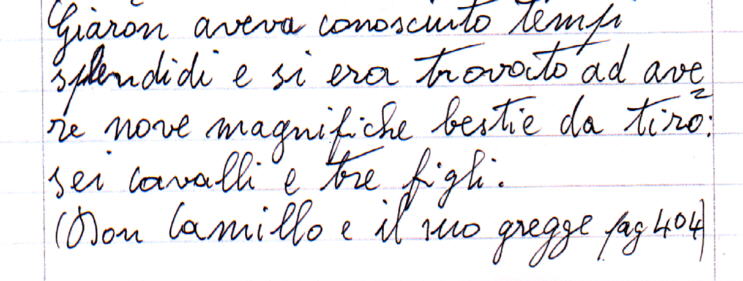 Giarón aveva conosciuto tempi
splendidi e si era trovato ad ave
re nove magnifiche bestie da tiro:
sei cavalli e tre figli.
(Don Camillo e il suo gregge pag 404)